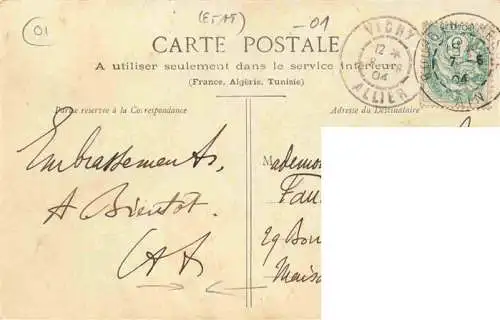 01
(ETAT)
-01
CARTE POSTALE
A utiliser seulement dans le service intérieur
(France, Algérie, Tunisie)
VICHY
12
04
ALLIER
7
04
Partie réservée à la Correspondance
Adresse du Destinataire
Embrassements,
A Bientôt
Mademoi
Fau
29 Bou
Maiso